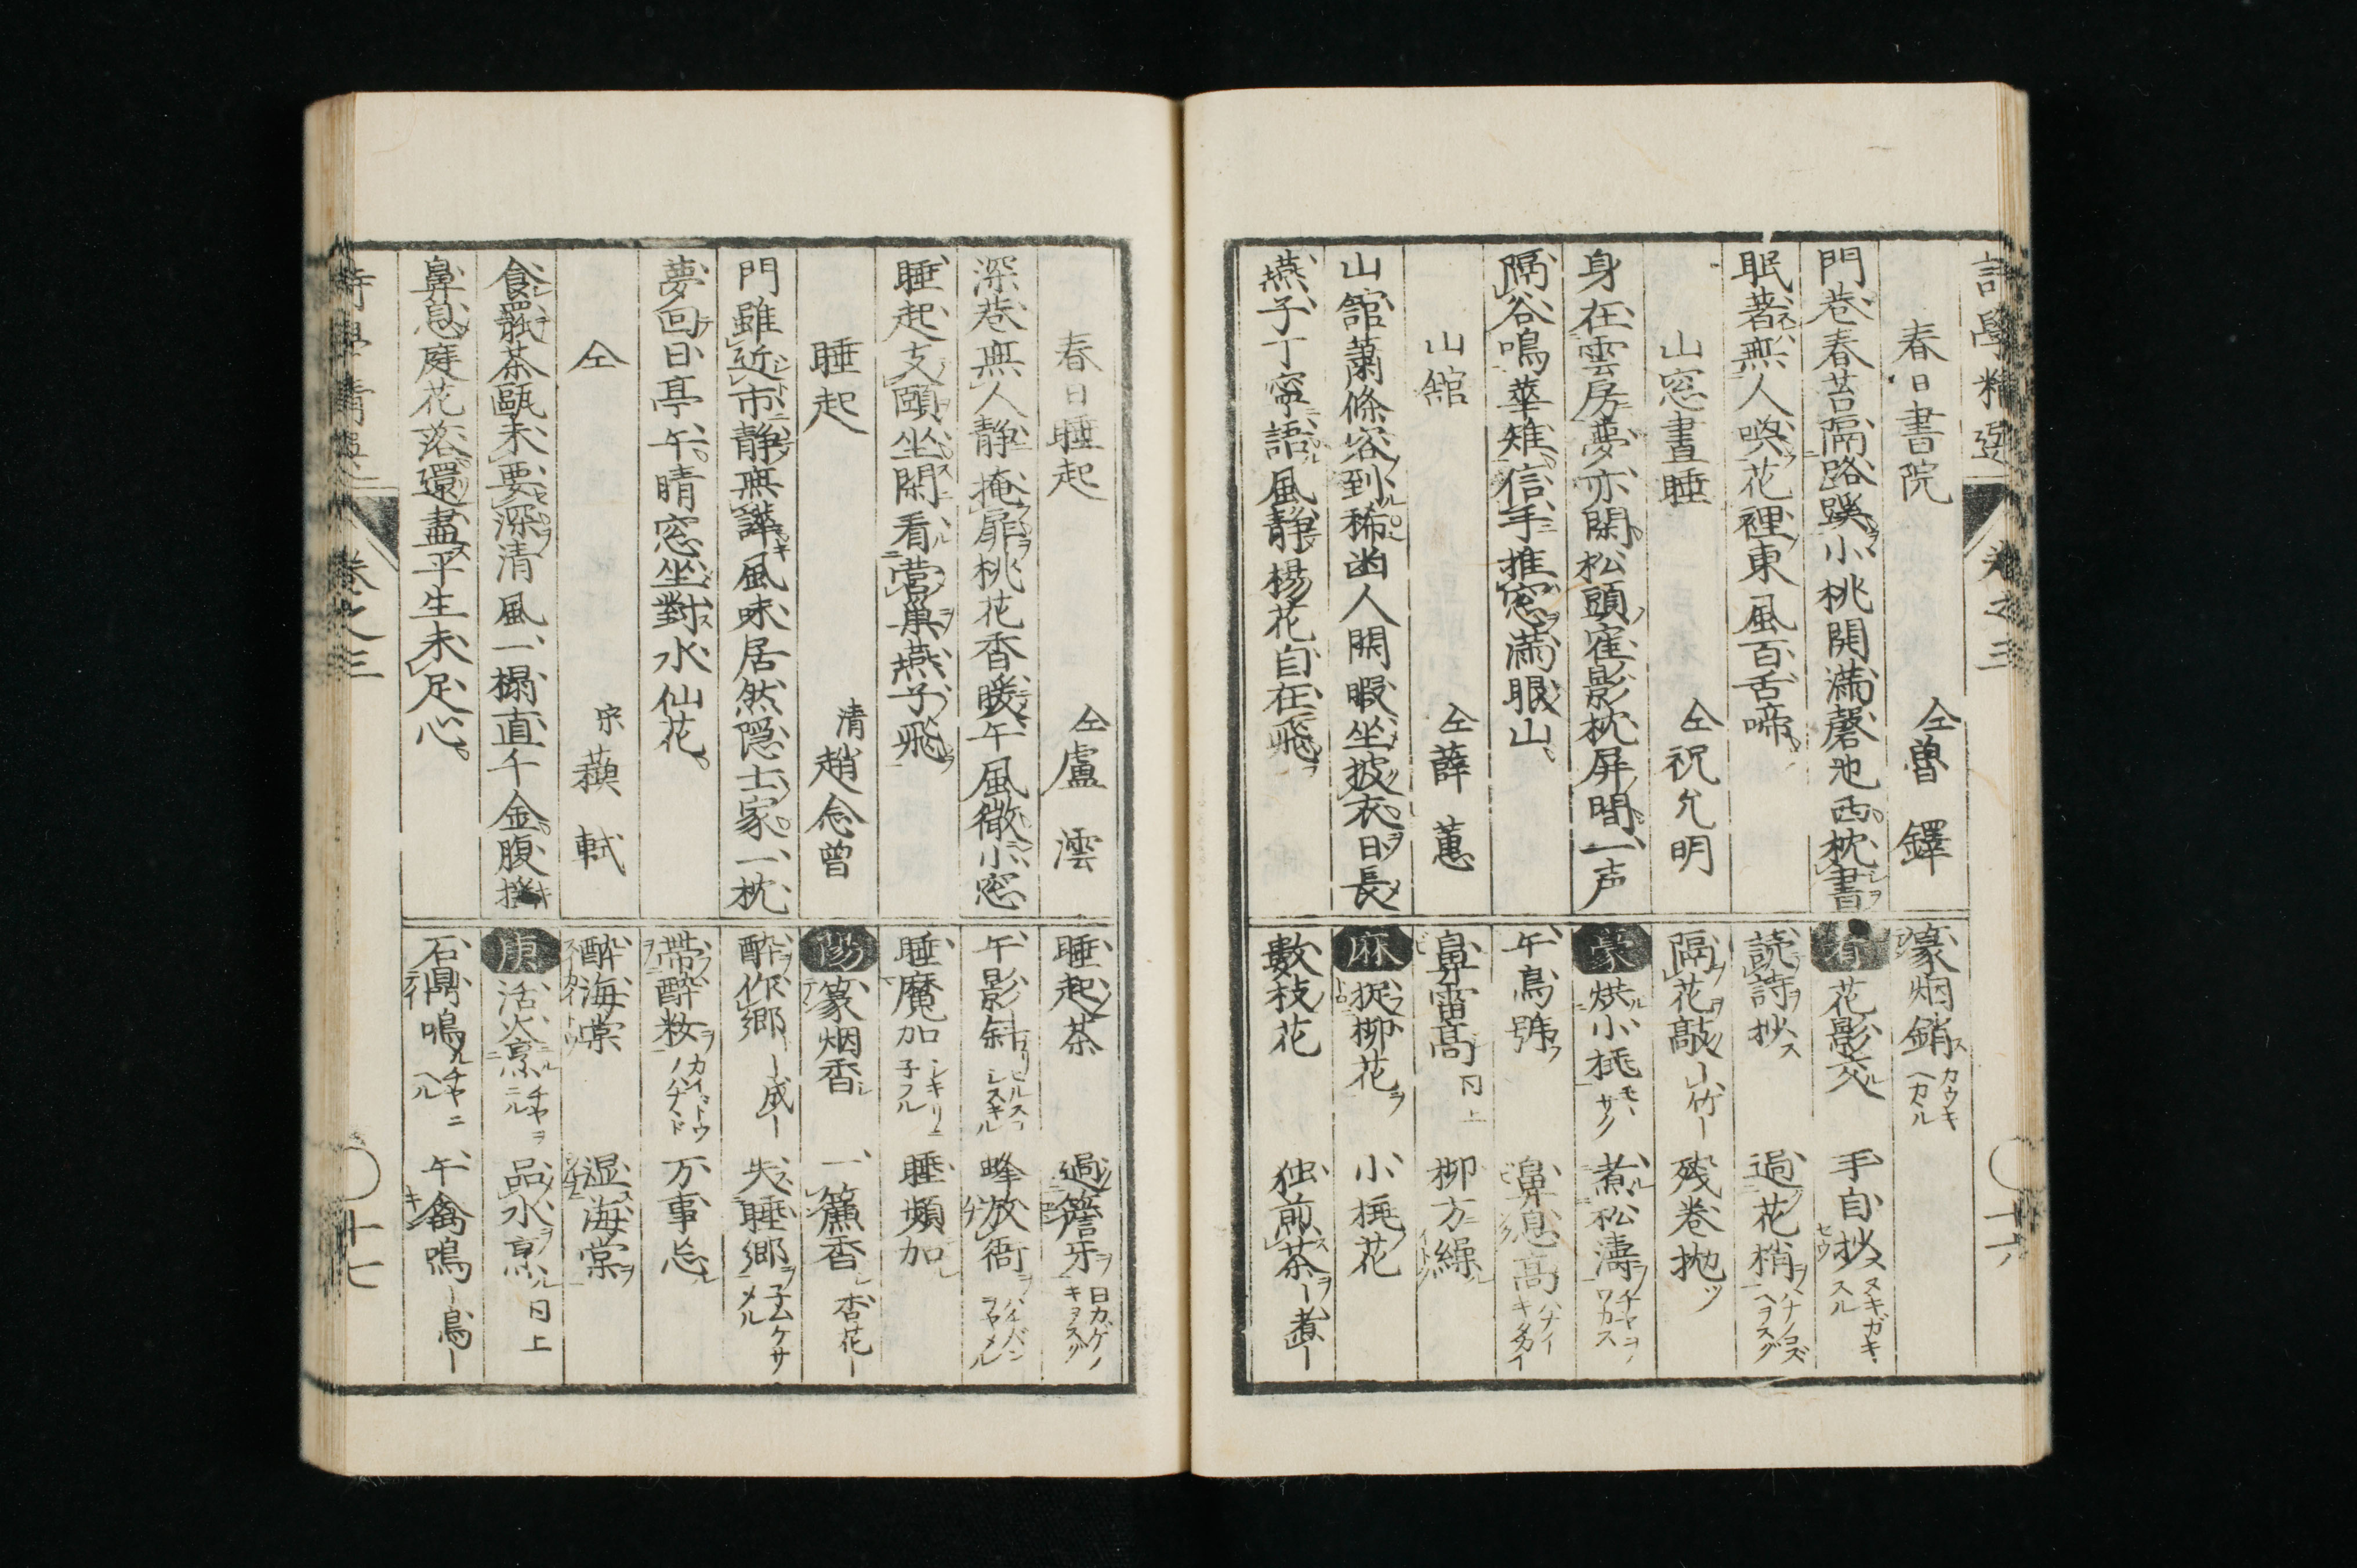 詩學精選 卷之三 十六
春日書院 仝 曽鐸
門巷春苔隔路蹊小桃開滿磬池西枕書
眠著無人喚花裡東風百舌啼
山窓晝睡 仝 祝允明
身在雲房夢亦閑松頭寉影枕屏間一声
隔谷鳴華雉信手推窓滿眼山
山舘 仝 薛蕙
山舘蕭條客到稀幽人閑暇坐披衣日長
燕子丁寧語風靜楊花自在飛
篆烟銷
肴 花影交 手自抄
読詩抄 過花梢
隔花敲 竹 残卷抛
豪 烘小桃 煮松濤
午鳥號 鼻息高
鼻雷高 日上 柳方繰
麻 捉柳花 小桃花
數枝花 独煎茶 煮
春日睡起 仝 盧澐
深巷無人靜掩扉桃花香暖午風微小窓
睡起支頤坐閑看營巢燕子飛
睡起 清 趙念曽
門雖近市靜無譁風味居然隠士家一枕
夢回日亭午晴窓坐對水仙花
仝 宋 蘓軾
食罷茶甌未要深清風一榻直千金腹揺
鼻息庭花落還盡平生未足心
睡起茶 過簷牙
午影斜 蜂放衙
睡魔加 睡頻加
陽 篆烟香 一簾香 杏花
酔作郷 成 失睡郷
帯酔粧 万事忘
酔海棠 湿海棠
庚 活火烹 品水烹 日上
石鼎鳴 午禽鳴 鳥
詩學精選 卷之三 十七